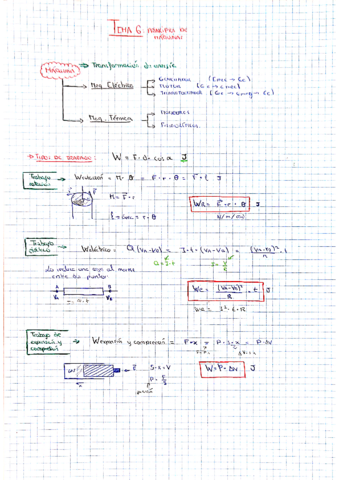 TEMA 6: PRINCIPIOS DE
MÁQUINAS
MÁQUINA → Transformación de energía
→ Maq. Eléctrica
GENERADOR (Emec → Ee)
MOTOR (Ee → Emec)
TRANSFORMADOR (Ee → Emag → Ee)
→ Maq. Térmica
→ TIPOS DE TRABAJO: W = F · Δx · cos α J
Trabajo
rotación
→ Wrotación = M · θ = F · r · θ = F · l J
M = F · r
l = arco = r · θ
WR = F · r · θ J
Trabajo
eléctrico
→ Weléctrico = Q (VA-VB) = I · t · (VA-VB) = (VA-VB)² / R · t
Q = I · t
I = V / R
entre dos puntos
A B
VA VB
We = (VA-VB)² / R · t J
We = I² · t · R
Trabajo de
expansión y
compresión
→ Wexpansión y compresión = F · x = P · S · x = P · ΔV
F
S · x = V
P = F / S
presión
W = P · ΔV J